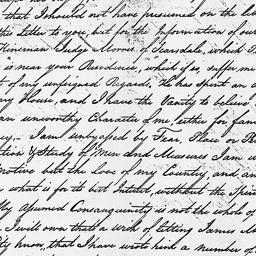 that I should not have presumed on the lib
this Letter to you, but for the Information of our
Kinsman Judge Morris of Scarsdale, which I
is near your Residence, which if so, suffer me
t of my unfeigned Regards, He has spent an
ry House, and I have the Vanity to believe
an unworthy Character of me, either for fam
ey. I am unbyassed by Fear, Place or P
tion & Study of Men and Measures I am
otive but the Love of my Country, and an
n what is for its best Interest, without the Spir
My assumed Consanguinity is not the whole of
I will own that a Wish of letting James
ty know, that I have wrote him a number of